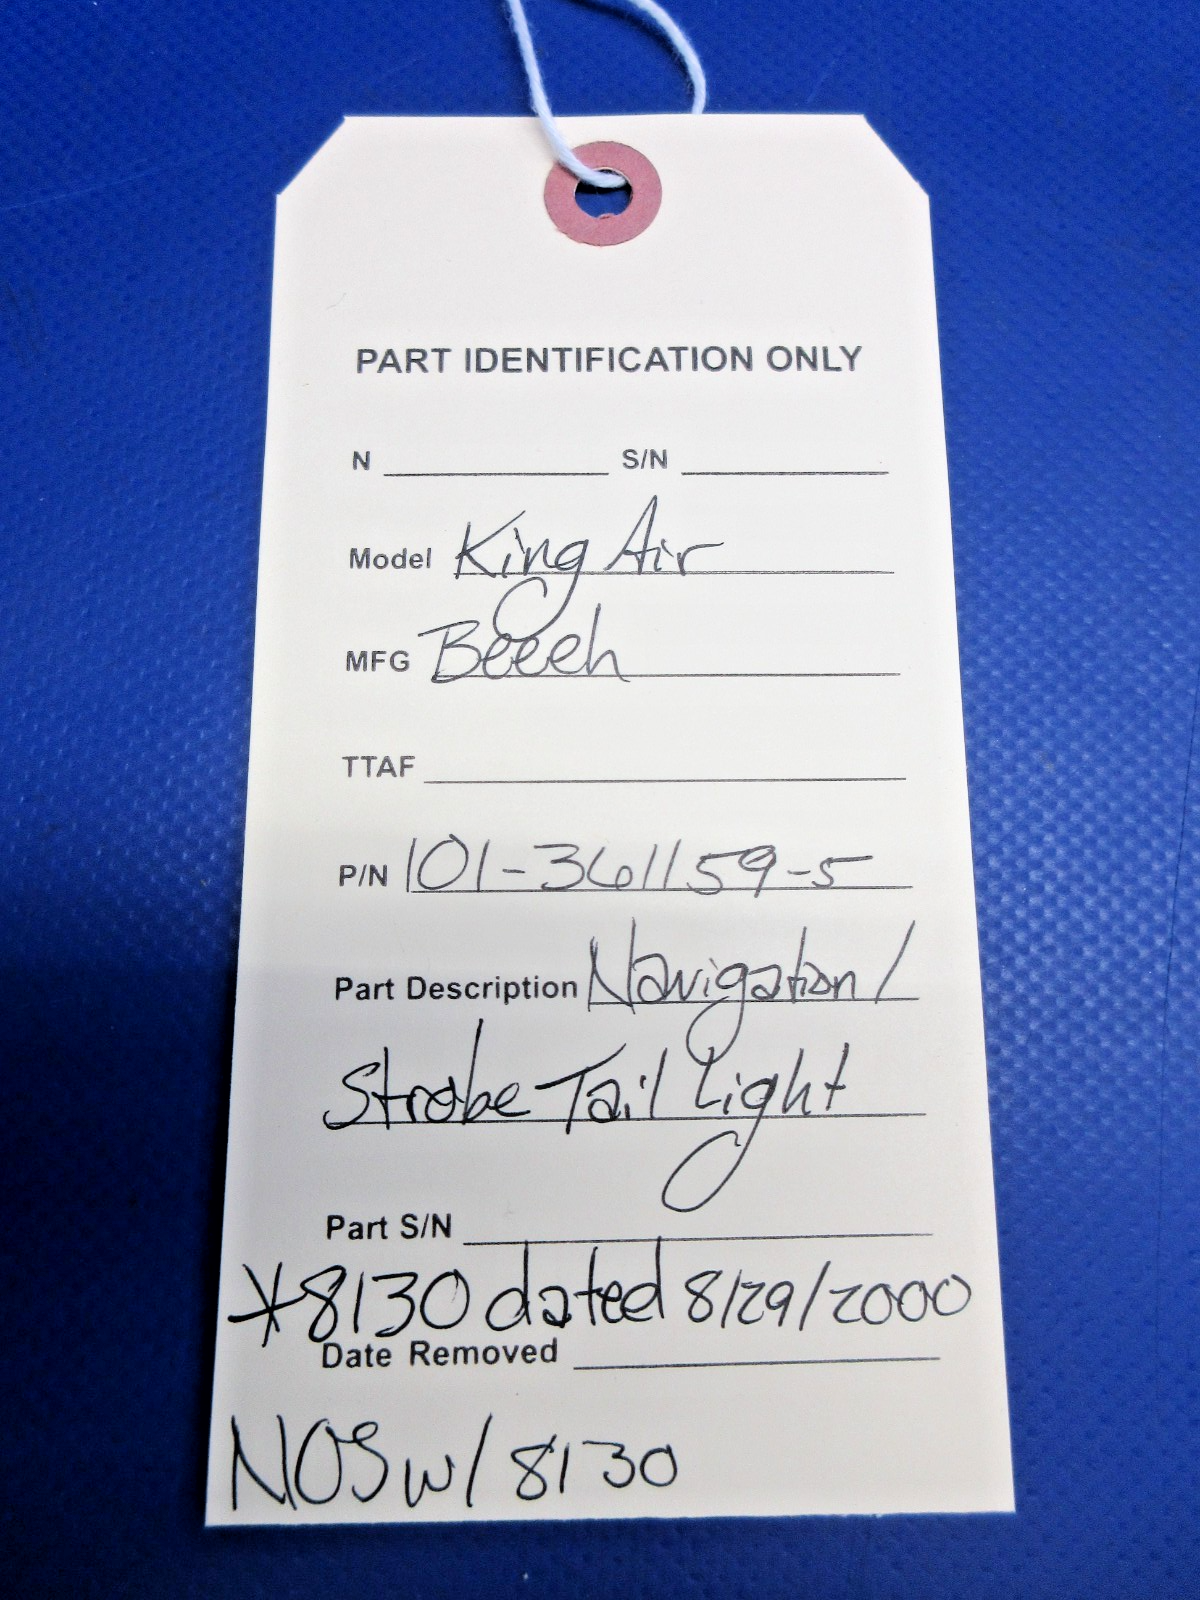 PART IDENTIFICATION ONLY
N S/N
Model King Air
MFG Beech
TTAF
P/N 101-361159-5
Part Description Navigation/
Strobe Tail Light
Part S/N
*8130 dated 8/29/2000
Date Removed
NOS w/ 8130